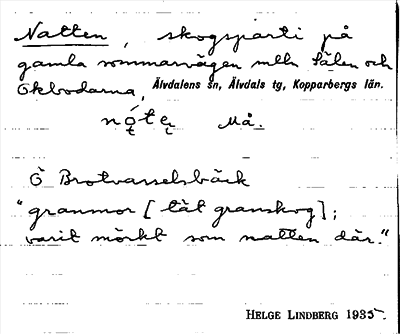 Natten, skogsparti på
gamla sommarvägen mlln Sälen och
Okbodarna, Älvdalens sn, Älvdals tg, Kopparbergs län.
Må.
Ö Brotvasselsbäck
"granmor [tät granskog];
varit mörkt som natten där."
HELGE LINDBERG 1935.